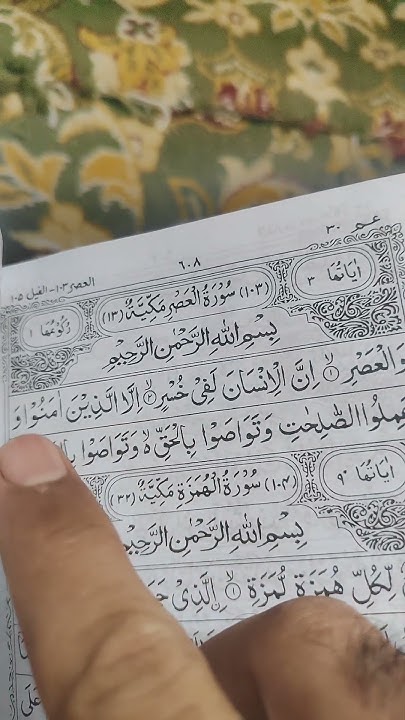 عم ٣٠
٦٠٨
العصر ١٠٣ - الفيل ١٠٥
اٰيَاتُهَا ٣
(١٠٣) سُوْرَةُ الْعَصْرِ مَكِّيَّةٌ (١٣)
رُكُوْعُهَا ١
بِسْمِ اللّٰهِ الرَّحْمٰنِ الرَّحِيْمِ
وَالْعَصْرِ ۙ﴿۱﴾ اِنَّ الْاِنْسَانَ لَفِيْ خُسْرٍ ۙ﴿۲﴾ اِلَّا الَّذِيْنَ اٰمَنُوْا وَ
عَمِلُوا الصّٰلِحٰتِ وَتَوَاصَوْا بِالْحَقِّ ۙ۬ وَتَوَاصَوْا
اٰيَاتُهَا ٩
(١٠٤) سُوْرَةُ الْهُمَزَةِ مَكِّيَّةٌ (٣٢)
بِسْمِ اللّٰهِ الرَّحْمٰنِ الرَّحِيْمِ
لِّكُلِّ هُمَزَةٍ لُّمَزَةٍ ۙ﴿۱﴾ الَّذِيْ